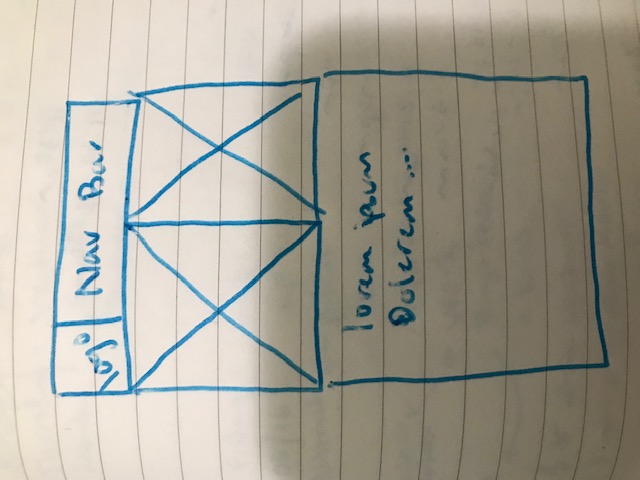 logo
Nav Bar
lorem ipsum
Dolerem ....